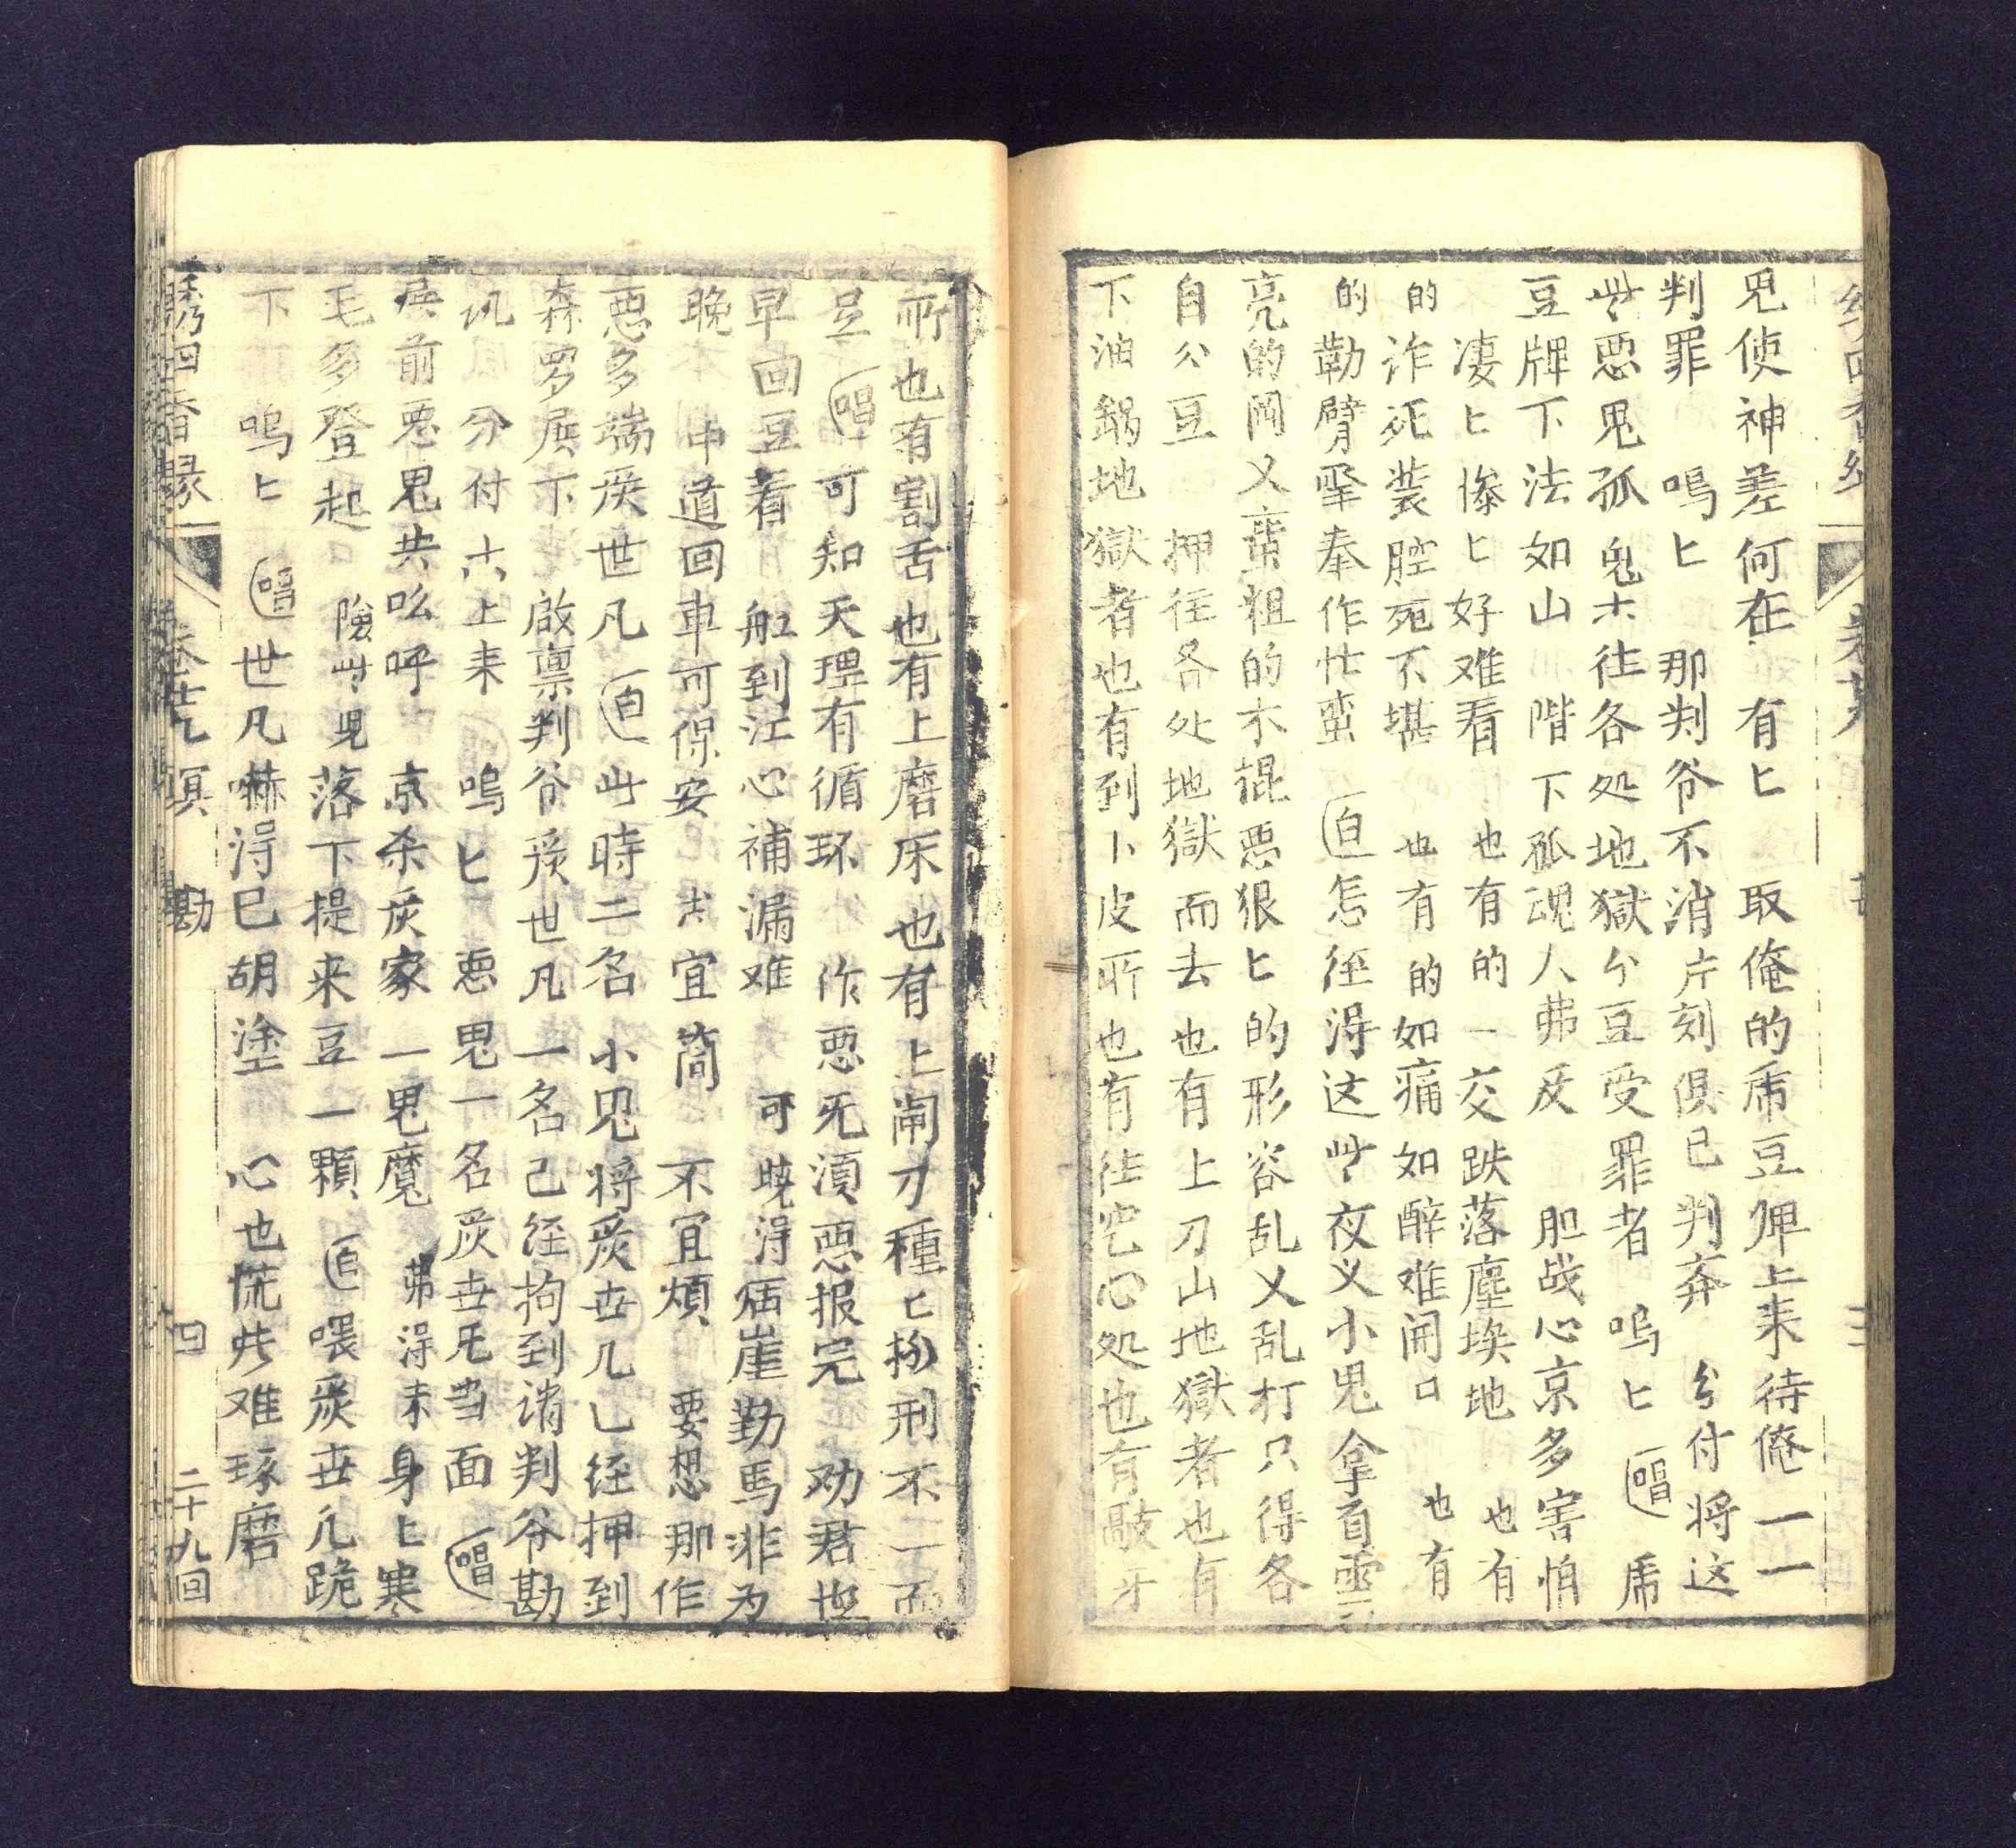 鬼使神差何在　有匕　取俺的乕豆牌上来待俺一一
判罪　嗚匕　那判爷不消片刻俱已判奔　分付将这
些惡鬼孤鬼六往各处地獄分豆受罪者　嗚匕　唱　乕
豆牌下法如山　階下孤魂人弗反　胆战心京多害怕
凄匕惨匕好难看　也有的一交跌落塵埃地　也有
的诈死装腔死不堪　也有的如痛如醉难闹口　也有
的勒臂擎拳作忙蛮　白　怎径淂这些夜乂小鬼拿有雪
亮的岡乂蛮粗的木棍惡狠匕的形容乱乂乱打只得各
自公豆　押往各处地獄而去也有上刀山地獄者也有
下油鍋地獄者也有到卜皮所也有往穵心处也有敲牙
所也有割舌也有上磨床也有上闸刀種匕扮刑不一而
足　唱　可知天理有循环　作惡旡湏惡报完　劝君也
早回豆看　舡到江心補漏难　可曉淂臨崖勒馬非为
晚　中道回車可保安　宜簡不宜煩　要想那作
惡多端戾世凡　白　此時二名小鬼将戾世几已径押到
森罗展下　啟禀判爷戾世凡一名已径拘到请判爷勘
讯　分付六上来　嗚匕　惡鬼一名戾世旡当面　唱
展前惡鬼共吆呼　京杀戾家一鬼魔　弗淂未身匕寒
毛多登起　險些児落下提来豆一顆　白　喂戾世几跪
下　嗚匕　唱　世凡嚇淂已胡塗　心也慌此难琢磨
绣四香緣　卷廿九　冥勘　四　二十九回